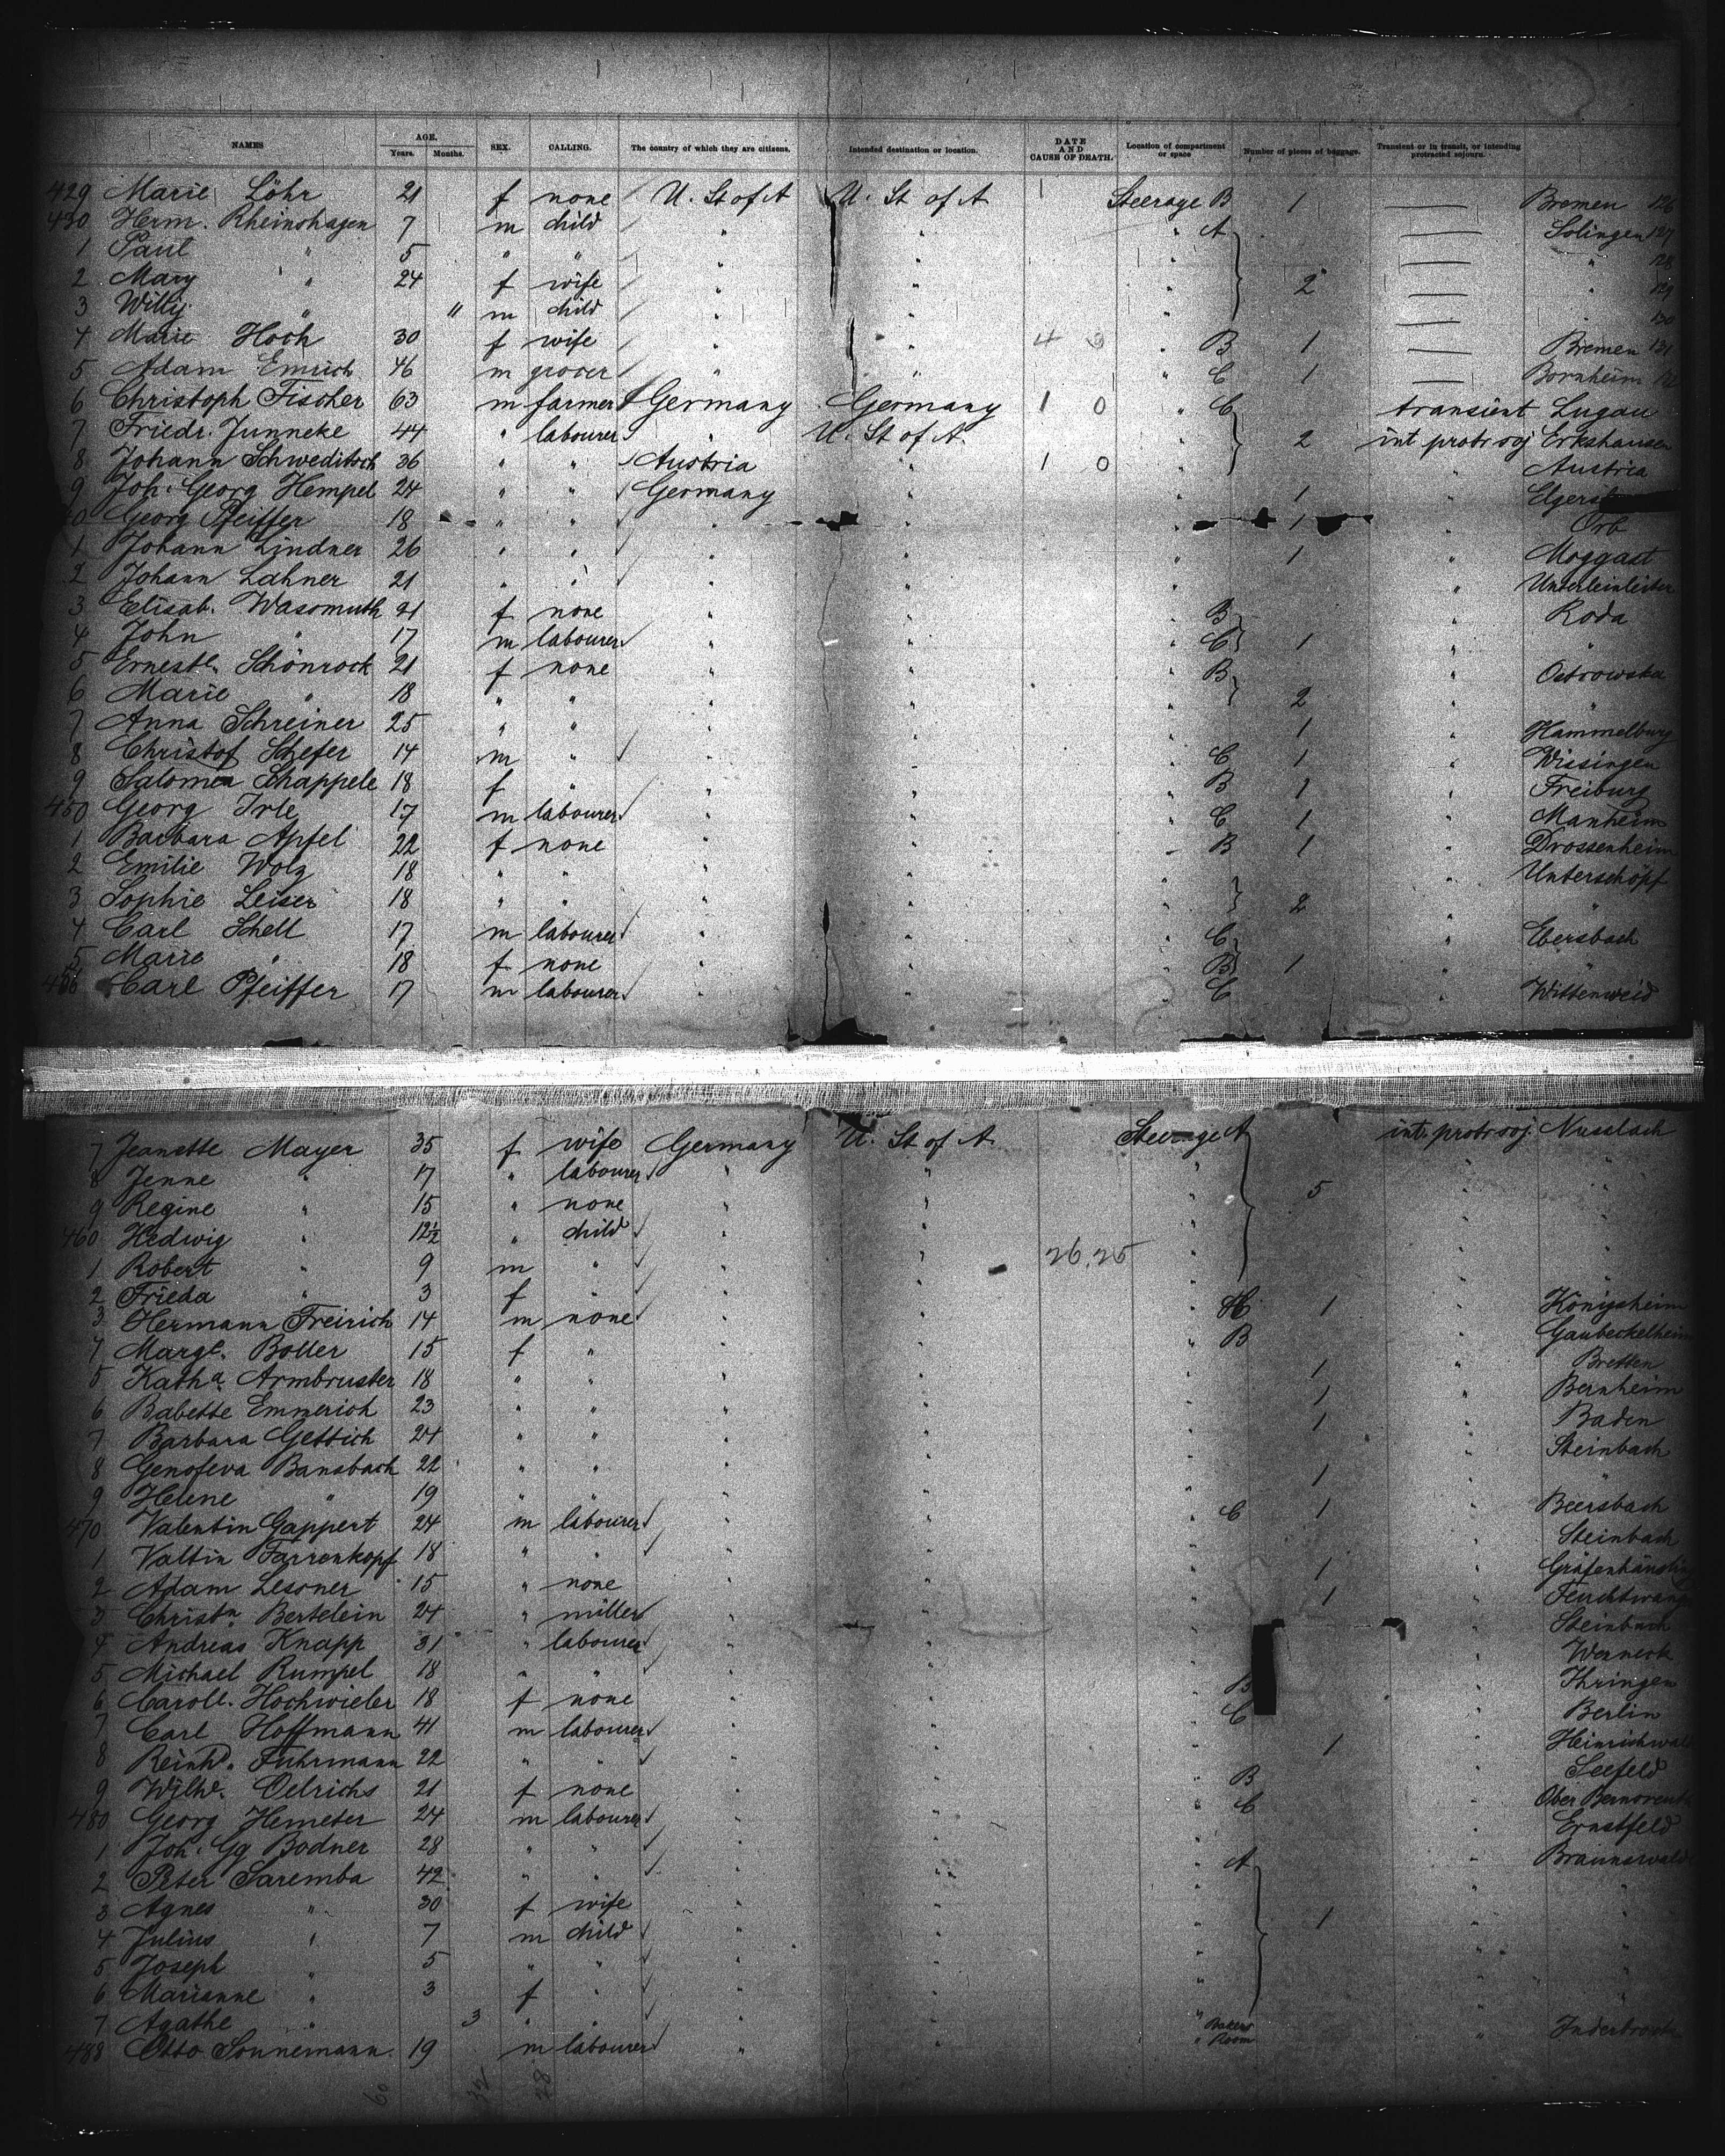 NAMES AGE. Years. Months. SEX. CALLING. The country of which they are citizens. Intended destination or location. DATE AND CAUSE OF DEATH. Location of compartment or space Number of pieces of baggage. Transient or in transit, or intending protracted sojourn.
429 Marie Löhr 21 f none U. St of A U. St of A Steerage B 1 — Bremen 126
430 Herm. Rheinshagen 7 m child " " " A — Solingen 127
1 Paul " 5 " " " " " — " 128
2 Mary " 24 f wife " " " 2 — " 129
3 Willy " 11 m child " " " — " 130
4 Marie Hoch 30 f wife " " " B 1 — Bremen 131
5 Adam Emrich 46 m grocer " " " C 1 — Bornheim
6 Christoph Fischer 63 m farmer Germany Germany 1 0 " C transient Lugau
7 Friedr. Junneke 44 " labourer " U. St of A. " 2 int protr soj Erkshausen
8 Johann Schweditsch 36 " " Austria " 1 0 " Austria
9 Joh. Georg Hempel 24 " " Germany " " 1
Georg Pfeiffer 18 " " " " " 1 " Orb
1 Johann Lindner 26 " " " " " 1 " Moggast
2 Johann Lahner 21 " " " " " " Unterleinleiter
3 Elisab. Wassmuth 21 f none " " " B " Roda
4 John " 17 m labourer " " " C 1 " "
5 Ernestl. Schönrock 21 f none " " " B " Ostrowska
6 Marie " 18 " " " " " 2 " "
7 Anna Schreiner 25 " " " " " 1 " Hammelburg
8 Christof Schefer 14 m " " " " C 1 " Wissingen
9 Salomea Schappele 18 f " " " " B 1 " Freiburg
450 Georg Irle 17 m labourer " " " C 1 " Manheim
1 Barbara Apfel 22 f none " " " B 1 " Drossenheim
2 Emilie Wolz 18 " " " " " " Unterschopf
3 Sophie Leiser 18 " " " " " 2 " "
4 Carl Schell 17 m labourer " " " C " Ebersbach
5 Marie " 18 f none " " " B 1 " "
456 Carl Pfeiffer 17 m labourer " " " C " Wittenweid
7 Jeanette Mayer 35 f wife Germany U. St of A. Steerage A int. protr soj. Nusslach
8 Jenne " 17 " labourer " " " 5 " "
9 Regine " 15 " none " " " " "
460 Hedwig " 12½ " child " " " " "
1 Robert " 9 m " " " 26,25 " " "
2 Frieda " 3 f " " " " " "
3 Hermann Freirich 14 m none " " " 1 " Königsheim
4 Margt. Boller 15 f " " " " B " Gaubeckelheim
5 Katha Armbruster 18 " " " " " 1 " Bretten
6 Babette Emmerich 23 " " " " " 1 " Bernheim
7 Barbara Gettich 24 " " " " " 1 " Baden
8 Genofeva Bansbach 22 " " " " " " Steinbach
9 Helene " 19 " " " " " 1 " "
470 Valentin Gappert 24 m labourer " " " C 1 " Beersbach
1 Valtin Farrenkopf 18 " " " " " " Steinbach
2 Adam Lessner 15 " none " " " 1 "
3 Christn Bertelein 24 " miller " " " 1 "
4 Andreas Knapp 31 " labourer " " " " Steinbach
5 Michael Rumpel 18 " " " " " " Werneck
6 Caroll. Hochwieler 18 f none " " " B " Ihringen
7 Carl Hoffmann 41 m labourer " " " C " Berlin
8 Reinhd. Fuhrmann 22 " " " " " 1 "
9 Wilhe. Oelrichs 21 f none " " " B " Seefeld
480 Georg Hemeter 24 m labourer " " " C " Ober
1 Joh. Gg Bodner 28 " " " " " " Ernstfeld
2 Peter Saremba 42 " " " " " A " Braunswalde
3 Agnes " 30 f wife " " " " "
4 Julius " 7 m child " " " 1 " "
5 Joseph " 5 " " " " " " "
6 Marianne " 3 f " " " " " "
7 Agathe " 3 " " " " " " "
488 Otto Sonnemann. 19 m labourer " " " Bakers Room "
60 32 28